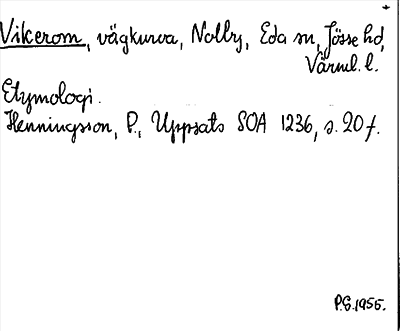 Vikerom, vägkurva, Nolby, Eda sn, Jösse hd,
Värml. l.
Etymologi.
Henningsson, P., Uppsats SOA 1236, s. 20 f.
P.G. 1955.